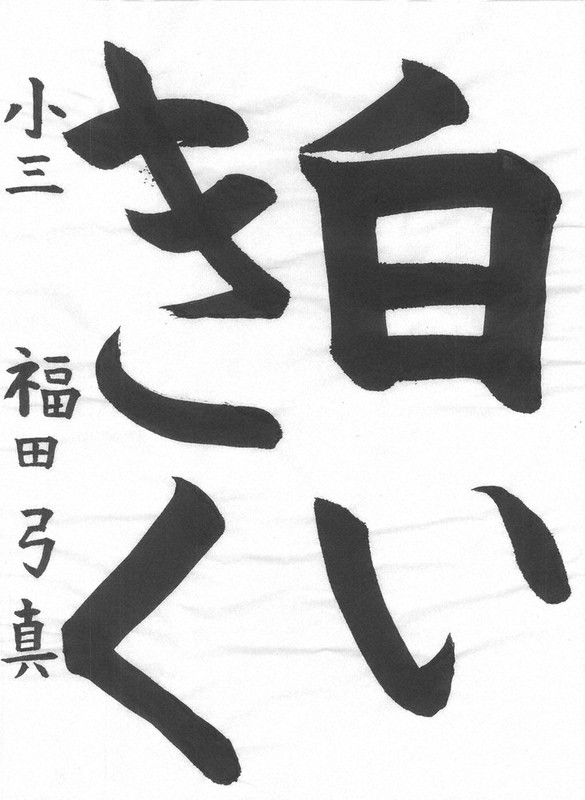 白い
きく
小三 福田弓真